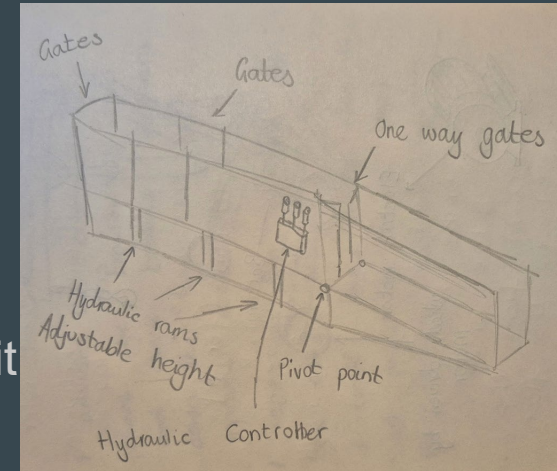 Gates
Gates
One way gates
it
Hydraulic rams
Adjustable height
Pivot point
Hydraulic Controller